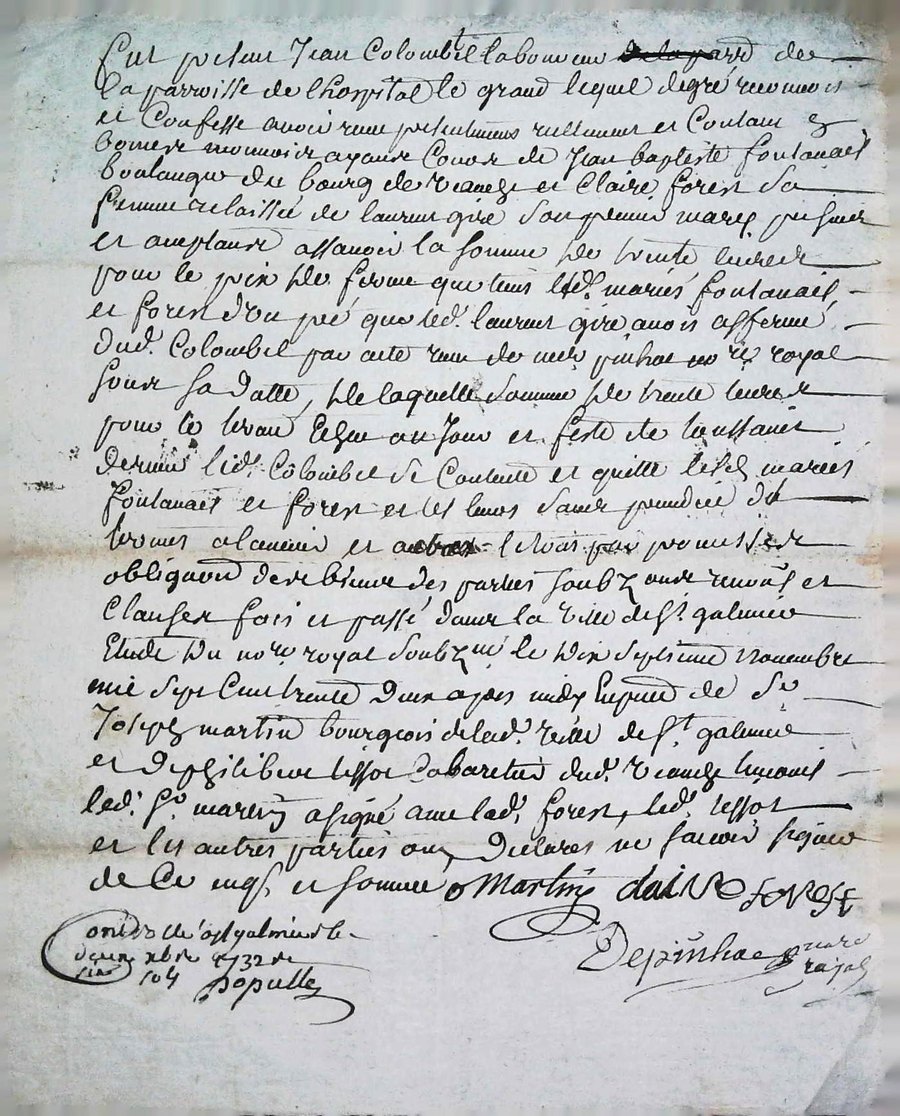 fut présent Jean Colombet laboureur de
la parroisse de lhospital le grand lequel de gré reconnois
et Confesse avoir reçu présentement réellement et Contant en
bonne monnoie ayant Cours de Jean baptiste fontanais
boulanger du bourg de veauche et Claire forest sa
femme relaissée de laurent gire son premier mary, présent
et acceptant assavoir la somme de trente livres
pour le prix de ferme que tient lesd. mariés fontanais,
et forest d'un pré que led. laurent gire avoit affermé
dud. Colombet par acte reçu de me pinhac nore royal
sous sa datte, de laquelle somme de trente livres
pour le terme échu au Jour et feste de toussaint
dernier led. Colombet se Contente et quitte lesd. mariés
fontanais et forest et les leurs sans préjudice du
termes a lavenir et par promesses
obligaon des biens des parties soubz
Clauses fait et passé dans la ville de St galmier
Etude du nore royal soubzné le dix septieme novembre
mil sept Cent trente deux apres midy En pnce de Sr
Joseph martin bourgeois de lad. ville de St galmier
et de philibert tissot Cabaretier dud. veauche tesmoins
led. Sr martin a signé avec lad. forest, led. tissot
et les autres parties ont déclarés ne sçavoir signer
de Ce enqs et sommé Martin claire forest
Depinhac nore
royal
a St galmier le
xbre 1732
populle